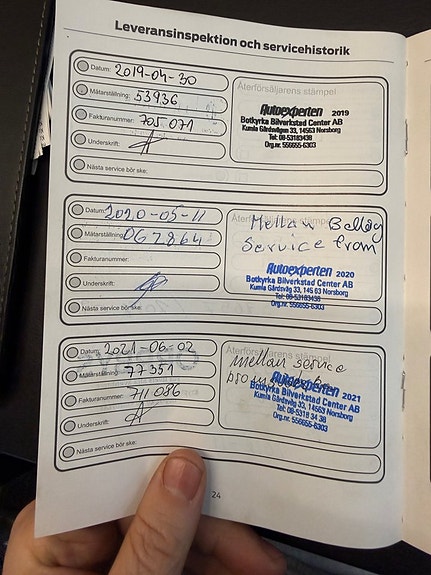 Leveransinspektion och servicehistorik
Datum: 2019-04-30
Mätarställning: 53936
Fakturanummer: 705071
Underskrift:
Nästa service bör ske:
Återförsäljarens stämpel
Autoexperten 2019
Botkyrka Bilverkstad Center AB
Kumla Gårdsväg 33, 145 63 Norsborg
Tel: 08-53183438
Org.nr. 556655-6303
Datum: 2020-05-11
Mätarställning: 067864
Fakturanummer:
Underskrift:
Nästa service bör ske:
Återförsäljarens stämpel
Mellan
Service from
Autoexperten 2020
Botkyrka Bilverkstad Center AB
Kumla Gårdsväg 33, 145 63 Norsborg
Tel: 08-53183438
Org.nr. 556655-6303
Datum: 2021-06-02
Mätarställning: 77351
Fakturanummer: 711086
Underskrift:
Nästa service bör ske:
Återförsäljarens stämpel
mellan service
Autoexperten 2021
Botkyrka Bilverkstad Center AB
Kumla Gårdsväg 33, 14563 Norsborg
Tel: 08-5318 34 38
Org.nr. 556655-6303
24